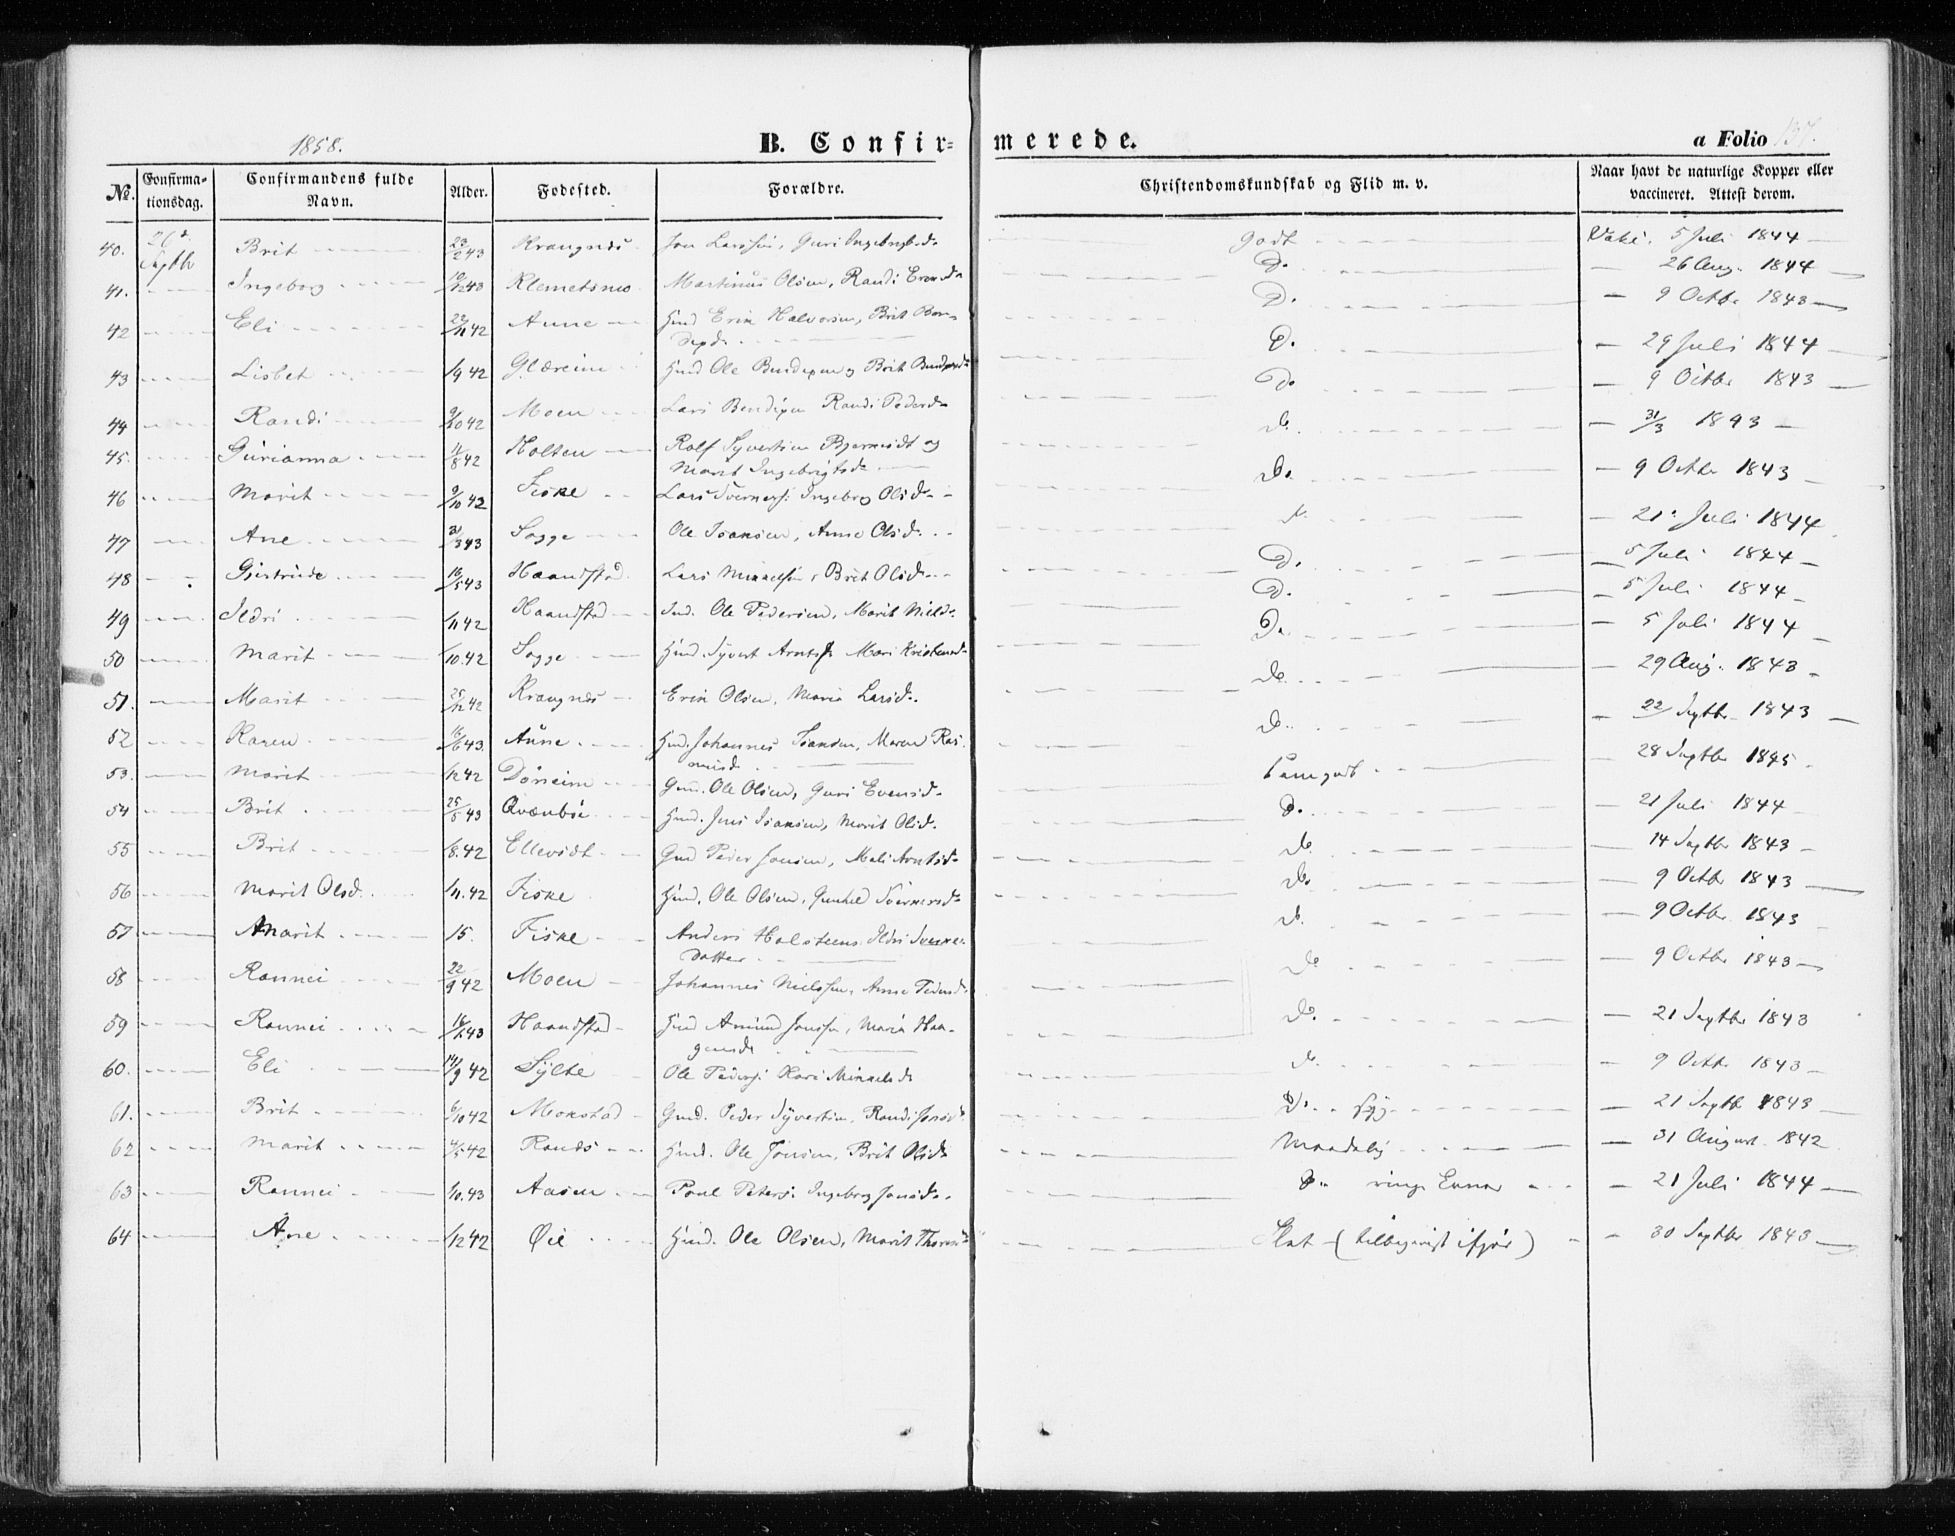 1858.
B. Confirmerede.
a Folio 137.
No. Confirmationsdag. Confirmandens fulde Navn. Alder. Fødested. Forældre. Christendomskundskab og Flid m. v. Naar havt de naturlige Kopper eller vaccineret. Attest derom.
40. 26d. Septbr Brit 23/2 43 Krangnes Jon Larssen, Guri Ingebrigtsd. Godt Vakc. 5 Juli 1844
41. Ingeborg 43 Klemetsmo Martinus Olsen, Randi D. 26 Aug. 1844
42 Eli 22/11 42 Aune Hmd Erik Halvorsen, Brit D. 9 Octbr 1843
43 Lisbet /9 42 Glæreim Hmd Ole og Brit D. 29 Juli 1844
44 Randi 9/10 42 Moen Lars Randi Pedersd. Do 9 Octbr 1843
45. Gurianna 4/8 42 Holten Rolf Syvertsen og Marit Ingebrigtsd. D. 31/3 1843
46 Marit 9/10 42 Fiske Lars Ingeborg Olsd. D. 9 Octbr 1843
47 Ane 31/3 43 Sogge Ole Isaksen, Anne Olsd. 21. Juli 1844
48 Gjertrude 16/5 43 Haandstad Lars Mikkelsen, Brit Olsd. D. 5 Juli 1844
49 Ildri /11 42 Haandstad Ind. Ole Pedersen, Marit Nielsd. D. 5 Juli 1844
50 Marit /10. 42 Sogge Hmd. Syvert Arntss. Mari D. 5 Juli 1844
51. Marit 25/12 42 Krangnes Erik Olsen, Marie Larsd. D. 29 Aug. 1843
52 Karen 16/6 43. Aune Hmd. Johannes Isaksen, Maren Rasmusd. D. 22 Septbr 1843
53. Marit /12 42 Dørreim Gmd. Ole Olsen, Guri Evensd. Temgodt 28 Septbr 1845
54 Brit 25/5 43 Qvænbøe Hmd. Jens Isaksen, Marit Olsd. D. 21 Juli 1844
55 Brit /8. 42 Gmd Peder Jonsen, Mali Arntsd. D. 14 Septbr 1843
56 Marit Olsd. /11. 42 Fiske Hmd. Ole Olsen, Gunhild D. 9 Octbr 1843
57 Marit 15. Fiske Anders Holsteens. Ildri datter D. 9 Octbr. 1843
58 Rannei 22/9 42 Moen Johannes Nielssen, Anne Pedersd. D. 9 Octbr 1843
59 Rannei 43 Haandstad Hmd Amund Jonssen, Marie Haagensd. D. 21 Septbr 1843
60. Eli 14/9 42 Sylte Ole Peders. Kari Mikkelsd. D. 9 Octbr 1843
61. Brit 6/10 42 Mokstad Gmd. Peder Syvertsen, Randi Jonsd. D. 21 Septbr 1843
62 Marit 4/5 42 Rands Hmd. Ole Jonsen, Brit Olsd. Maadelig 31 August 1842
63 Rannei /10. 43 Aasen Poul Peters. Ingeborg Jonsd. D. ringe Evner 21 Juli 1844
64 Ane /12 42 Øie Hmd. Ole Olsen, Marit Thoresd. Slet (tilbagevist ifjor) 30 Septbr 1843